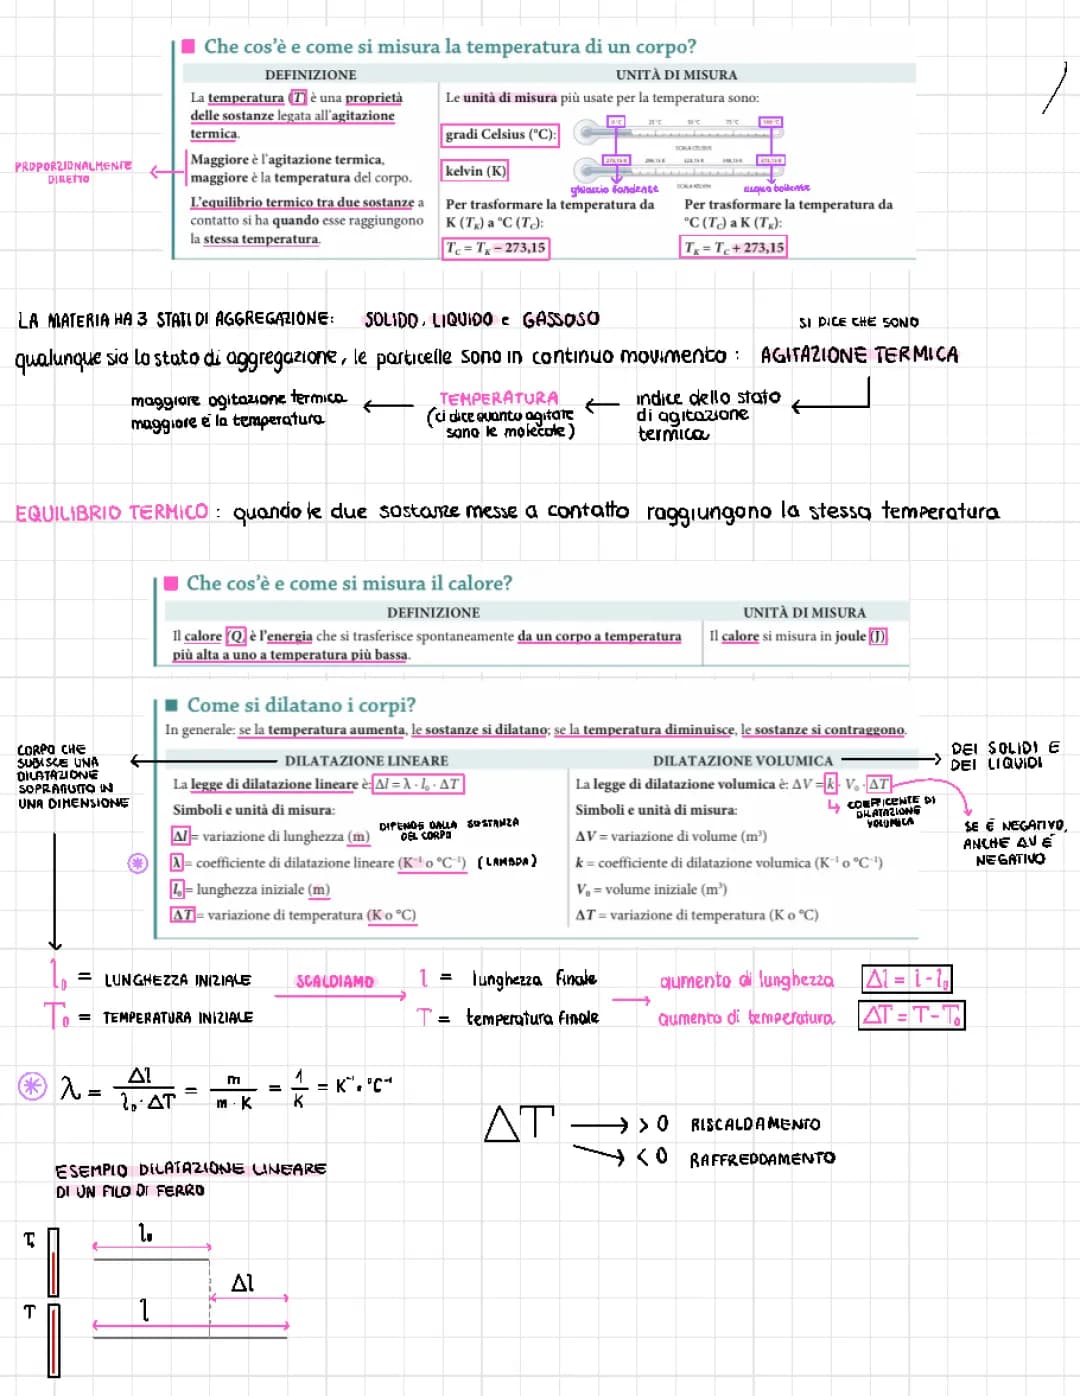 Che cos'è e come si misura la temperatura di un corpo?
DEFINIZIONE
La temperatura (T) è una proprietà
delle sostanze legata all'agitazione
termica.
Maggiore è l'agitazione termica,
maggiore è la temperatura del corpo.
L'equilibrio termico tra due sostanze a
contatto si ha quando esse raggiungono
la stessa temperatura.
PROPORZIONALMENTE
DIRETTO
UNITÀ DI MISURA
Le unità di misura più usate per la temperatura sono:
gradi Celsius (°C):
0 °C 25 °C 50 °C 75 °C 100 °C
SCALA CELSIUS
kelvin (K)
273,15 K 298,15 K 323,15 K 348,15 K 373,15 K
SCALA KELVIN
ghiaccio fondente
acqua bollente
Per trasformare la temperatura da
K (TK) a °C (TC):
TC = TK – 273,15
Per trasformare la temperatura da
°C (TC) a K (TK):
TK = TC + 273,15
LA MATERIA HA 3 STATI DI AGGREGAZIONE: SOLIDO, LIQUIDO e GASSOSO
SI DICE CHE SONO
qualunque sia lo stato di aggregazione, le particelle sono in continuo movimento : AGITAZIONE TERMICA
maggiore agitazione termica
maggiore è la temperatura
TEMPERATURA
(ci dice quanto agitate
sono le molecole)
indice dello stato
di agitazione
termica
EQUILIBRIO TERMICO : quando le due sostanze messe a contatto raggiungono la stessa temperatura
Che cos'è e come si misura il calore?
DEFINIZIONE
Il calore (Q) è l'energia che si trasferisce spontaneamente da un corpo a temperatura
più alta a uno a temperatura più bassa.
UNITÀ DI MISURA
Il calore si misura in joule (J)
Come si dilatano i corpi?
In generale: se la temperatura aumenta, le sostanze si dilatano; se la temperatura diminuisce, le sostanze si contraggono.
CORPO CHE
SUBISCE UNA
DILATAZIONE
SOPRATUTTO IN
UNA DIMENSIONE
DILATAZIONE LINEARE
La legge di dilatazione lineare è: Δl = λ · l₀ · ΔT
Simboli e unità di misura:
Δl = variazione di lunghezza (m)
DIPENDE DALLA SOSTANZA
DEL CORPO
λ = coefficiente di dilatazione lineare (K⁻¹ o °C⁻¹) (LAMBDA)
l₀ = lunghezza iniziale (m)
ΔT = variazione di temperatura (K o °C)
DILATAZIONE VOLUMICA
La legge di dilatazione volumica è: ΔV = k · V₀ · ΔT
Simboli e unità di misura:
COEFFICENTE DI
DILATAZIONE
VOLUMICA
ΔV = variazione di volume (m³)
k = coefficiente di dilatazione volumica (K⁻¹ o °C⁻¹)
V₀ = volume iniziale (m³)
ΔT = variazione di temperatura (K o °C)
DEI SOLIDI E
DEI LIQUIDI
SE È NEGATIVO,
ANCHE ΔV È
NEGATIVO
l₀ = LUNGHEZZA INIZIALE SCALDIAMO l = lunghezza finale aumento di lunghezza Δl = l - l₀
T₀ = TEMPERATURA INIZIALE T = temperatura finale aumento di temperatura ΔT = T - T₀
λ = Δl / l₀ · ΔT = m / m · K = 1 / K = K⁻¹ o °C⁻¹
ΔT > 0 RISCALDAMENTO
< 0 RAFFREDDAMENTO
ESEMPIO DILATAZIONE LINEARE
DI UN FILO DI FERRO
T₀ l₀
Δl
T l